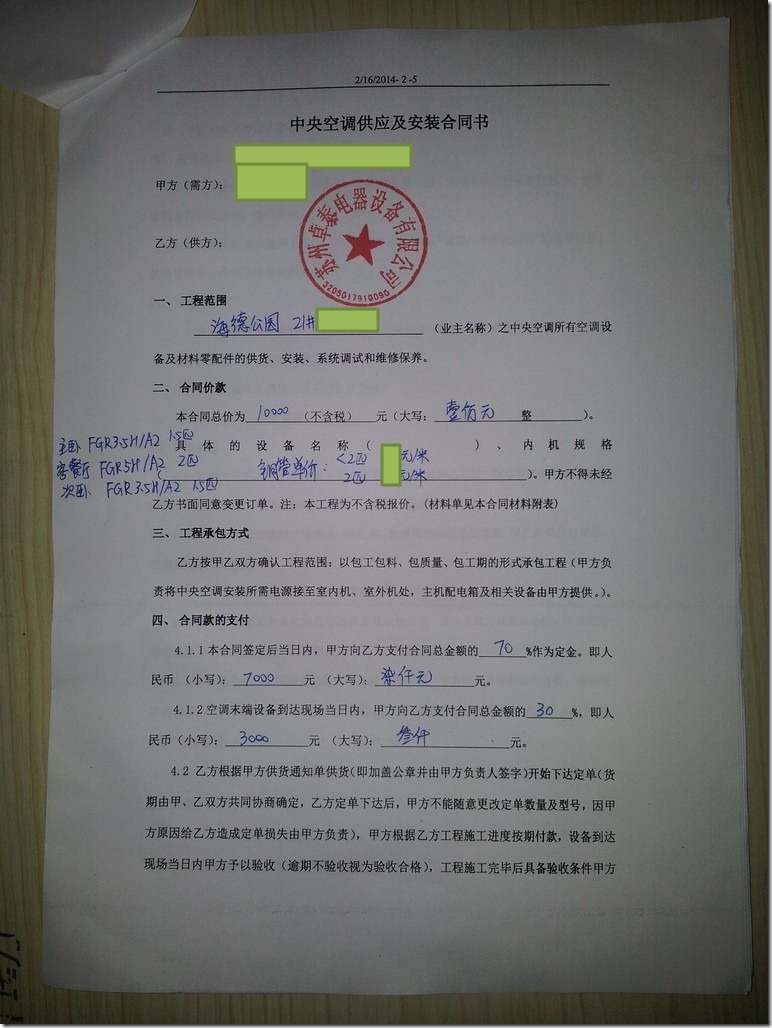 2/16/2014- 2 -5
中央空调供应及安装合同书
甲方（需方）：
乙方（供方）：
苏州卓泰电器设备有限公司
3205017910090
一、 工程范围
海德公园 21# （业主名称）之中央空调所有空调设
备及材料零配件的供货、安装、系统调试和维修保养。
二、 合同价款
本合同总价为 10000 （不含税） 元（大写： 壹佰元 整 ）。
主卧 FGR3.5H/A2 1.5匹
具体的设备名称（ ）、内机规格
客餐厅 FGR5H/A2 2匹
次卧 FGR3.5H/A2 1.5匹
铜管单价： <2匹 元/米
2匹 元/米
）。甲方不得未经
乙方书面同意变更订单。注：本工程为不含税报价。(材料单见本合同材料附表)
三、 工程承包方式
乙方按甲乙双方确认工程范围：以包工包料、包质量、包工期的形式承包工程（甲方负
责将中央空调安装所需电源接至室内机、室外机处，主机配电箱及相关设备由甲方提供。）。
四、 合同款的支付
4.1.1本合同签定后当日内，甲方向乙方支付合同总金额的 70 %作为定金。即人
民币 （小写）： 7000 元 （大写）： 柒仟元 元。
4.1.2空调末端设备到达现场当日内，甲方向乙方支付合同总金额的 30 %，即人
民币（小写）： 3000 元 （大写）： 叁仟 元。
4.2 乙方根据甲方供货通知单供货(即加盖公章并由甲方负责人签字)开始下达定单(货
期由甲、乙双方共同协商确定，乙方定单下达后，甲方不能随意更改定单数量及型号，因甲
方原因给乙方造成定单损失由甲方负责)，甲方根据乙方工程施工进度按期付款，设备到达
现场当日内甲方予以验收（逾期不验收视为验收合格），工程施工完毕后具备验收条件甲方